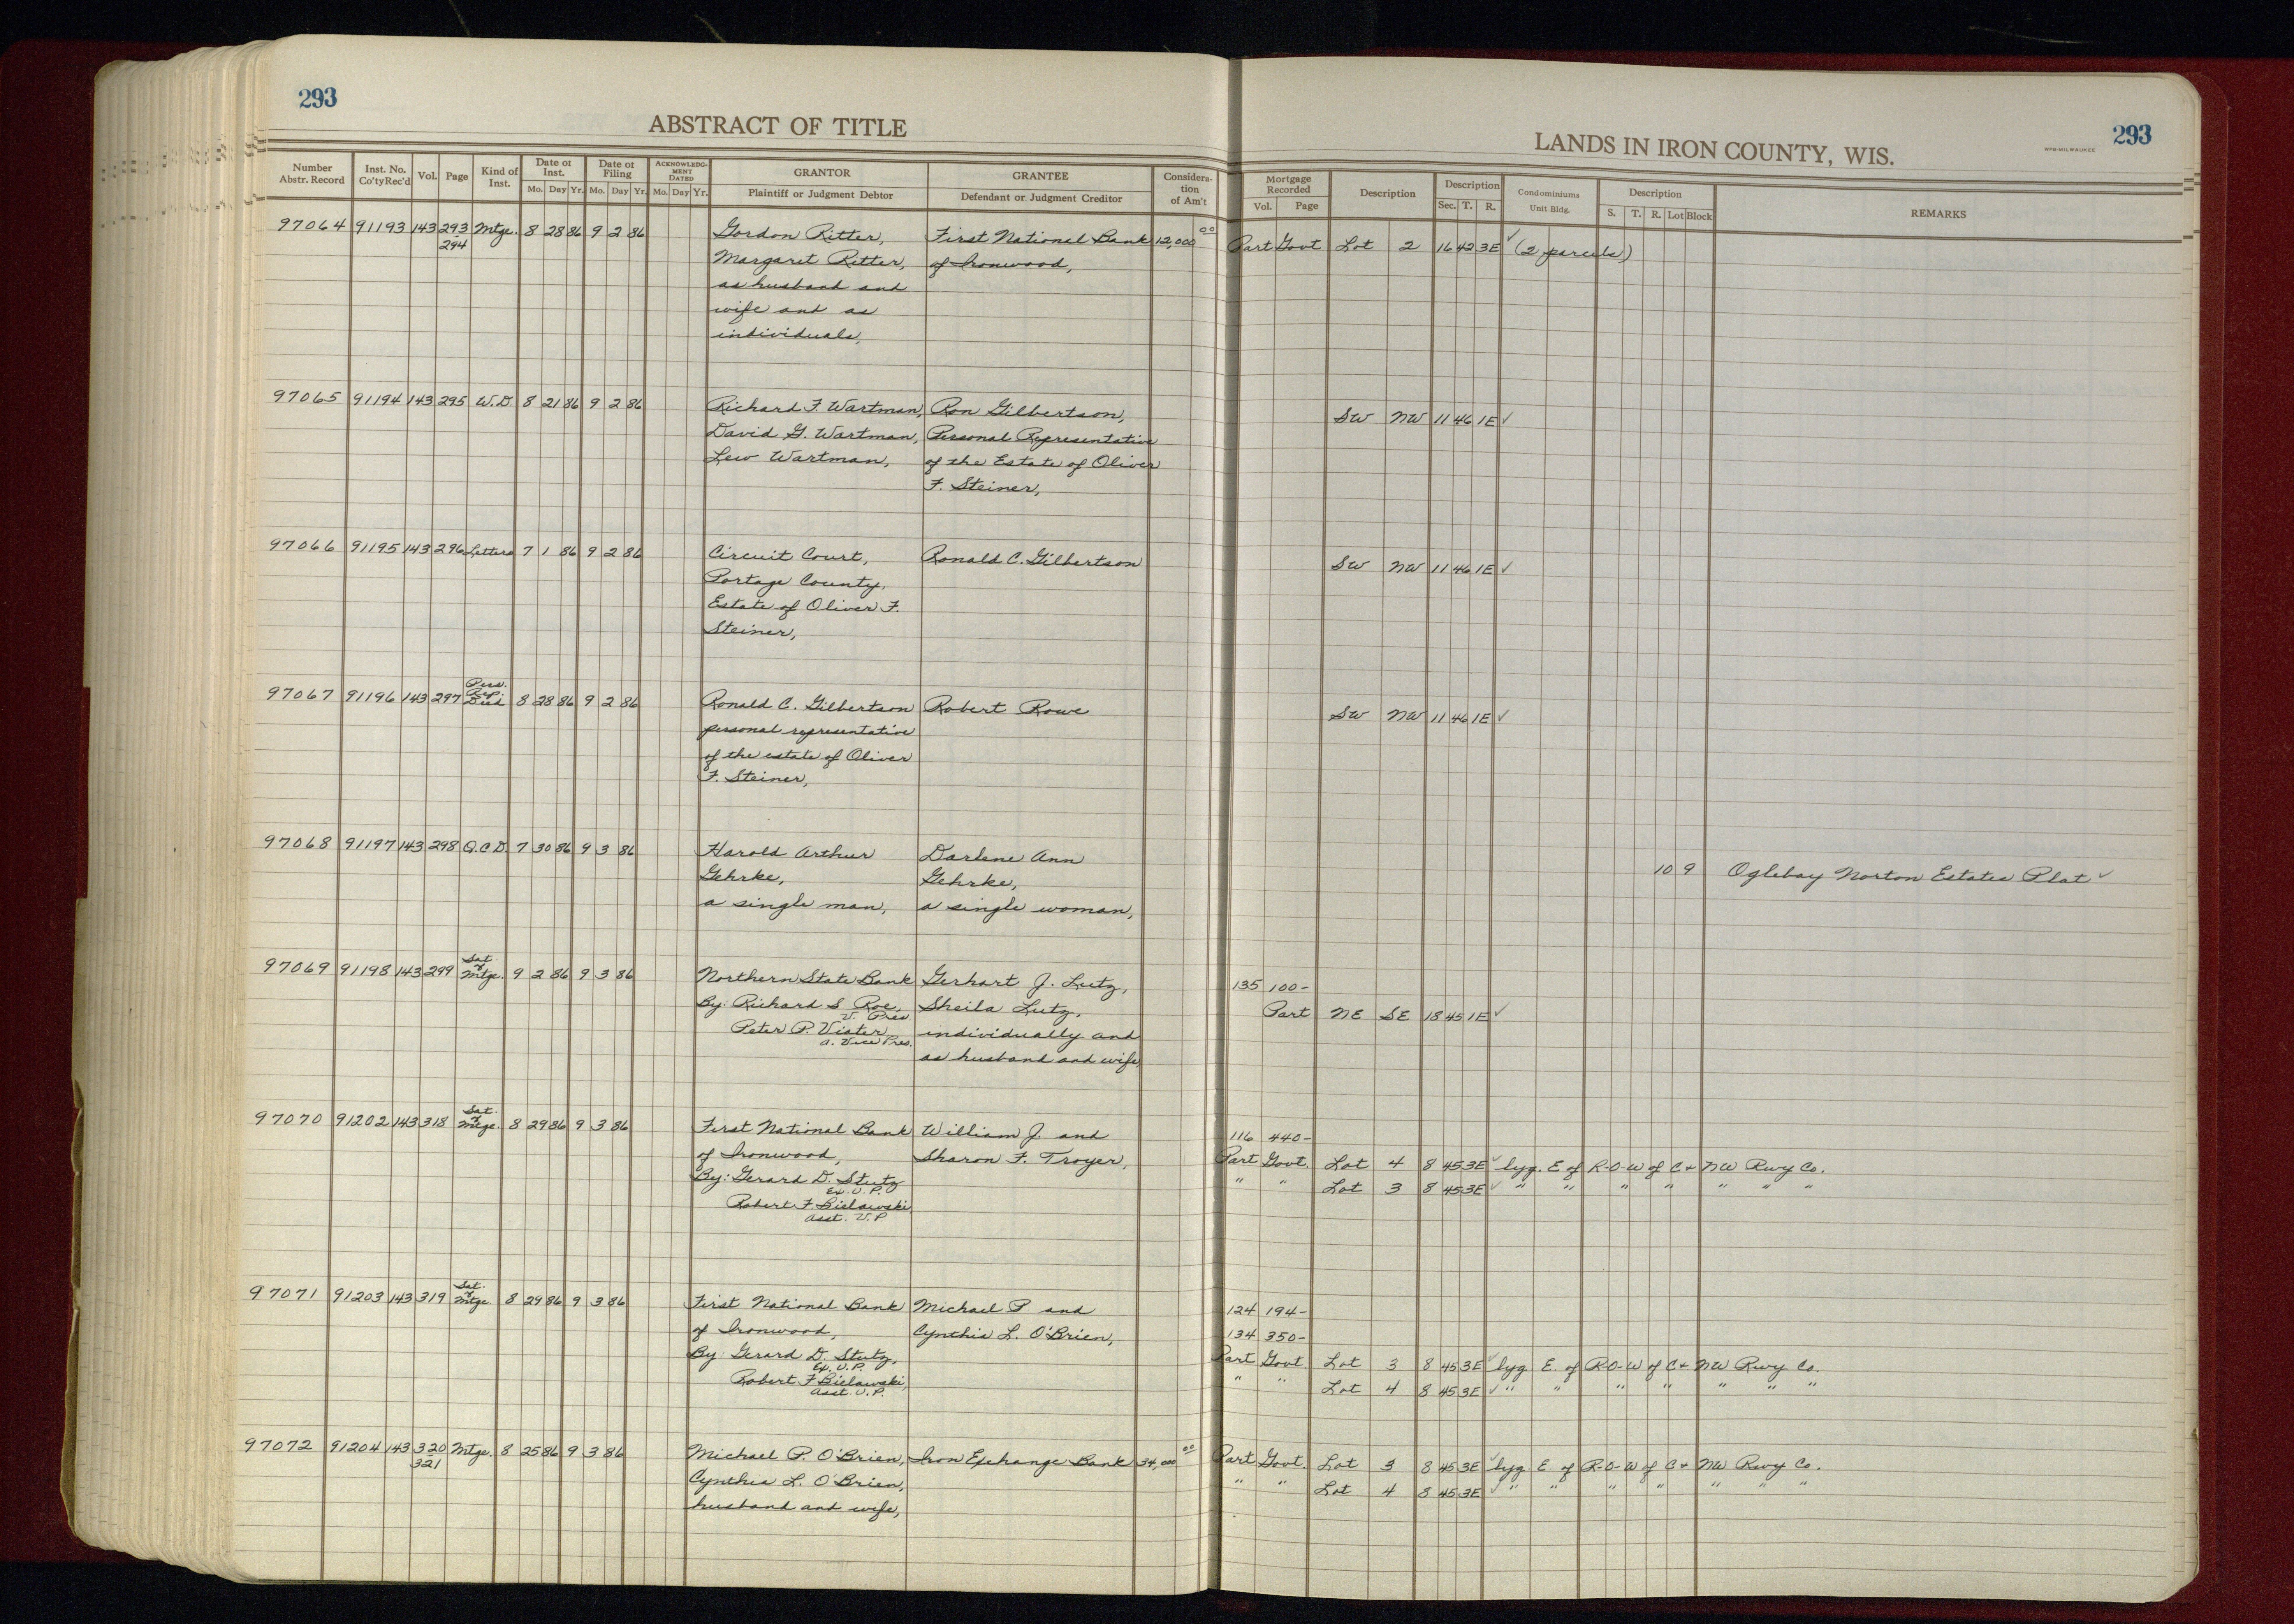 293
ABSTRACT OF TITLE
LANDS IN IRON COUNTY, WIS.
293
WPB-MILWAUKEE
Number Abstr. Record | Inst. No. Co'ty Rec'd | Vol. | Page | Kind of Inst. | Date of Inst. Mo. Day Yr. | Date of Filing Mo. Day Yr. | ACKNOWLEDGMENT DATED Mo. Day Yr. | GRANTOR Plaintiff or Judgment Debtor | GRANTEE Defendant or Judgment Creditor | Consideration of Am't | Mortgage Recorded Vol. Page | Description | Description Sec. T. R. | Condominiums Unit Bldg. | Description S. T. R. Lot Block | REMARKS
97064 91193 143 293 Mtge. 8 28 86 9 2 86 Gordon Ritter, First National Bank 12,000 00 Part Govt Lot 2 16 42 3E ✓ (2 parcels)
294 Margaret Ritter, of Ironwood,
as husband and
wife and as
individuals,
97065 91194 143 295 W.D. 8 21 86 9 2 86 Richard F. Wartman, Ron Gilbertson, SW NW 11 46 1E ✓
David G. Wartman, Personal Representative
Lew Wartman, of the Estate of Oliver
F. Steiner,
97066 91195 143 296 Letters 7 1 86 9 2 86 Circuit Court, Ronald C. Gilbertson SW NW 11 46 1E ✓
Portage County,
Estate of Oliver F.
Steiner,
97067 91196 143 297 Pers. Rep. Deed 8 28 86 9 2 86 Ronald C. Gilbertson Robert Rowe SW NW 11 46 1E ✓
personal representative
of the estate of Oliver
F. Steiner,
97068 91197 143 298 Q.C.D. 7 30 86 9 3 86 Harold Arthur Darlene Ann 10 9 Oglebay Norton Estates Plat ✓
Gehrke, Gehrke,
a single man, a single woman,
97069 91198 143 299 Sat. of Mtge. 9 2 86 9 3 86 Northern State Bank Gerhart J. Lutz, 135 100-
By: Richard S. Roe, Sheila Lutz, Part NE SE 18 45 1E ✓
V. Pres
Peter P. Viater, individually and
A. Vice Pres. as husband and wife,
97070 91202 143 318 Sat. of Mtge. 8 29 86 9 3 86 First National Bank William J. and 116 440-
of Ironwood, Sharon F. Troyer, Part Govt. Lot 4 8 45 3E ✓ lyg. E of R-O-W of C + NW Rwy Co.
By: Gerard D. Stutz " " Lot 3 8 45 3E ✓ " " " " " " "
Ex. V.P.
Robert F. Bielawski,
Asst. V.P
97071 91203 143 319 Sat. of Mtge 8 29 86 9 3 86 First National Bank Michael P and 124 194-
of Ironwood, Cynthia L. O'Brien, 134 350-
By: Gerard D. Stutz, Part Govt Lot 3 8 45 3E ✓ lyg E. of R-O-W of C + NW Rwy Co.
Ex. V.P.
Robert F Bielawski, " " Lot 4 8 45 3E ✓ " " " " " " "
Asst. V.P.
97072 91204 143 320 Mtge. 8 25 86 9 3 86 Michael P. O'Brien, Iron Exchange Bank 34,000 00 Part Govt. Lot 3 8 45 3E ✓ lyg E. of R-O-W of C + NW Rwy Co.
321 Cynthia L. O'Brien, " " Lot 4 8 45 3E ✓ " " " " " " "
husband and wife,